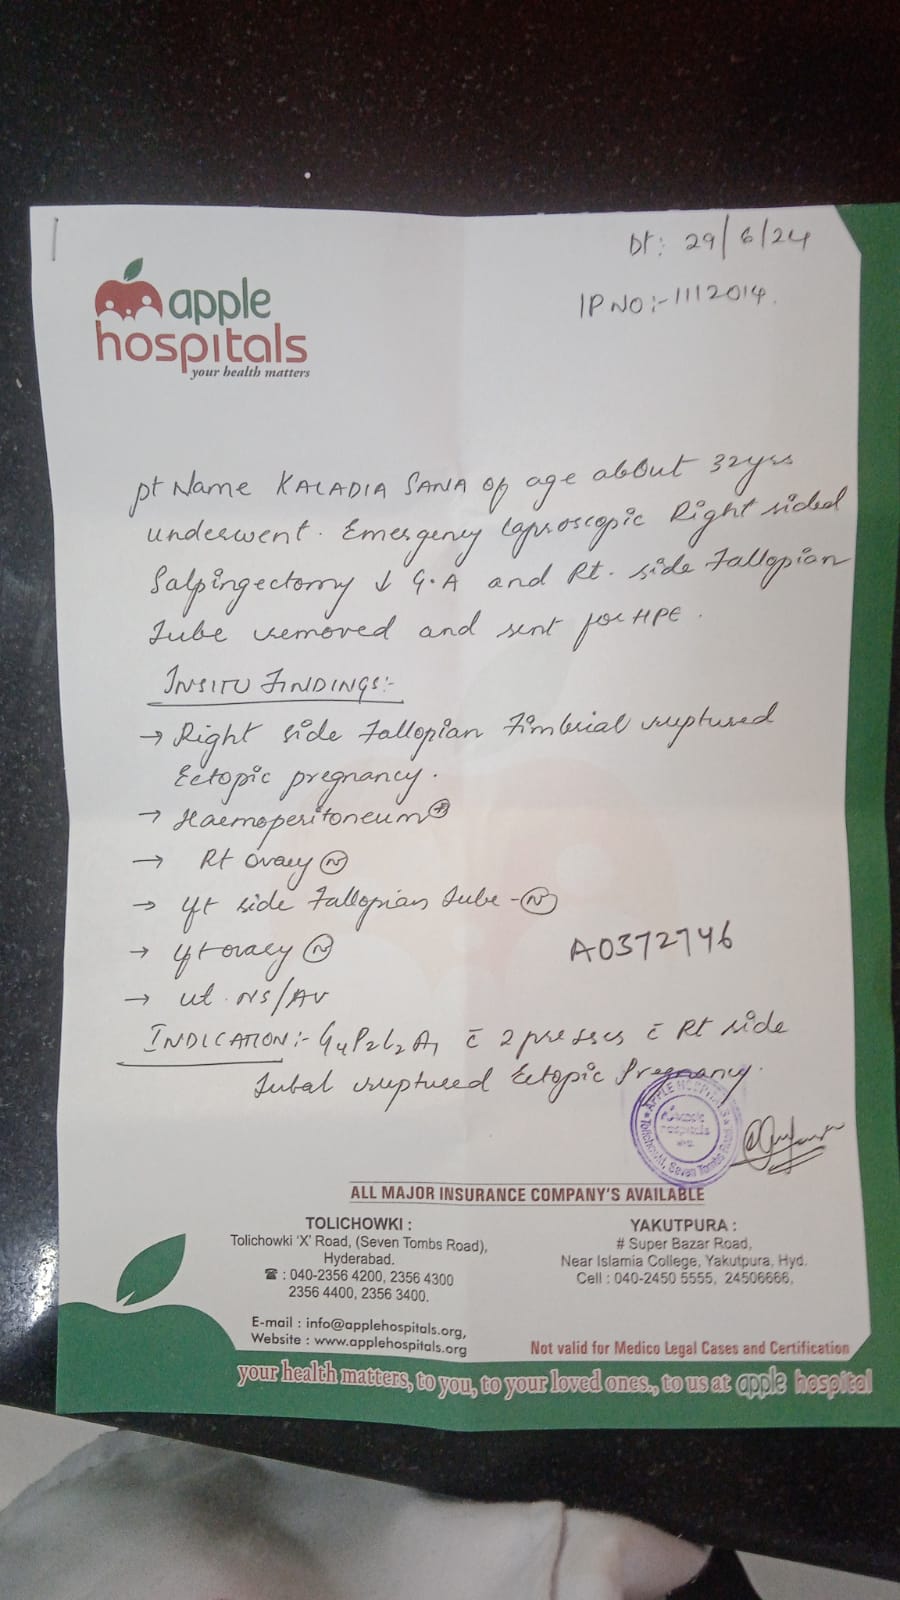 Dt: 29/6/24
IP NO:- 1112014.
apple
hospitals
your health matters
pt Name KALADIA SANA of age about 32yrs
underwent. Emergency laproscopic Right sided
Salpingectomy ↓ G.A and Rt. side Fallopian
Tube removed and sent for HPE.
INSITU FINDINGS:-
→ Right side Fallopian Fimbrial ruptured
Ectopic pregnancy.
→ Haemoperitoneum ⊕
→ Rt ovary Ⓝ
→ Lft side Fallopian Tube - Ⓝ
→ Lft ovary Ⓝ
A0372746
→ ut. NS/AV
INDICATION:- G4P2L2A1 c̄ 2 pr LSCS c̄ Rt side
Tubal ruptured Ectopic Pregnancy.
APPLE HOSPITALS
apple
hospitals
Tolichowki, Seven Tombs Road
ALL MAJOR INSURANCE COMPANY'S AVAILABLE
TOLICHOWKI :
Tolichowki 'X' Road, (Seven Tombs Road),
Hyderabad.
☎ : 040-2356 4200, 2356 4300
2356 4400, 2356 3400.
E-mail : info@applehospitals.org,
Website : www.applehospitals.org
YAKUTPURA :
# Super Bazar Road,
Near Islamia College, Yakutpura, Hyd.
Cell : 040-2450 5555, 24506666,
Not valid for Medico Legal Cases and Certification
your health matters, to you, to your loved ones., to us at apple hospital